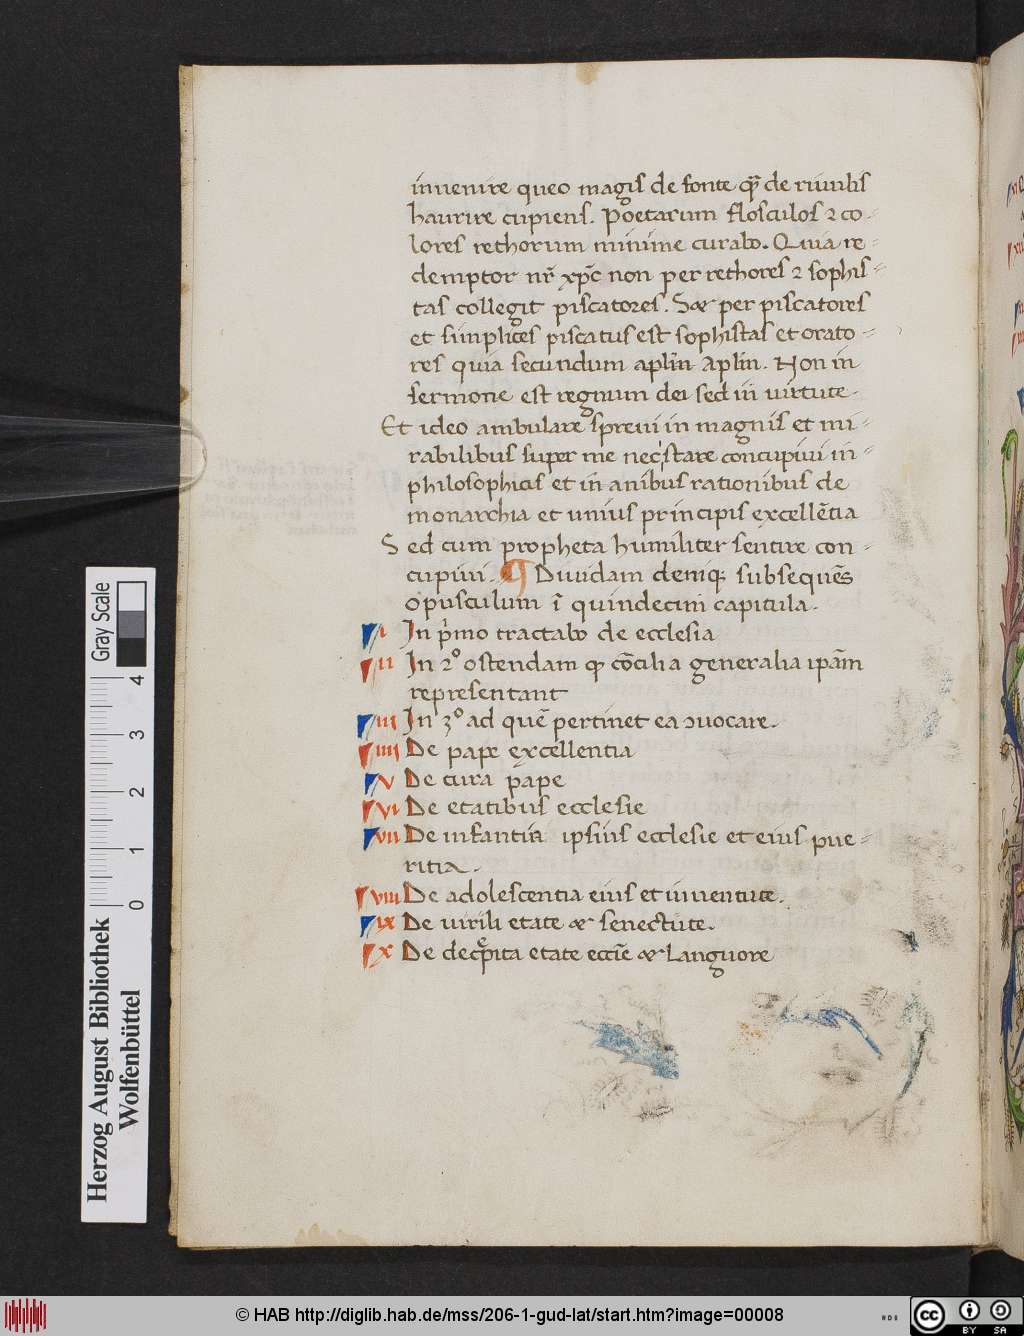 inuenire queo magis de fonte q̃ de riuulis
haurire cupiens. Poetarum flosculos ⁊ co-
lores rethorum minime curabo. Quia re-
demptor nr̃ xp̃c non per rethores ⁊ sophis-
tas collegit piscatores. Sꝫ per piscatores
et simplices piscatus est sophistas et orato-
res quia secundum aplm̃ Aplm̃. Non in
sermone est regnum dei sed in uirtute.
Et ideo ambulare spreui in magnis et mi-
rabilibus super me nec stare concupiui in-
philosophicis et inanibus rationibus de
monarchia et unius principis excellẽtia
Sed cum propheta humiliter sentire con-
cupiui. ¶ Diuidam deniqꝫ subsequẽs
opusculum ĩ quindecim capitula.
i In p̃mo tractabo de ecclesia
ii In 2º ostendam ꝙ cõcilia generalia ipam̃
representant
iii In 3º ad quẽ pertinet ea ↄuocare.
iiii De pape excellentia
v De cura pape
vi De etatibus ecclesie
vii De infantia ipsius ecclesie et eius pue-
ritia.
viii De adolescentia eius et iuuentute.
ix De uirili etate & senectute.
x De decp̃ita etate eccl̃ie & Languore
Gray Scale
4
3
2
1
0
Herzog August Bibliothek
Wolfenbüttel
© HAB http://diglib.hab.de/mss/206-1-gud-lat/start.htm?image=00008
cc BY SA